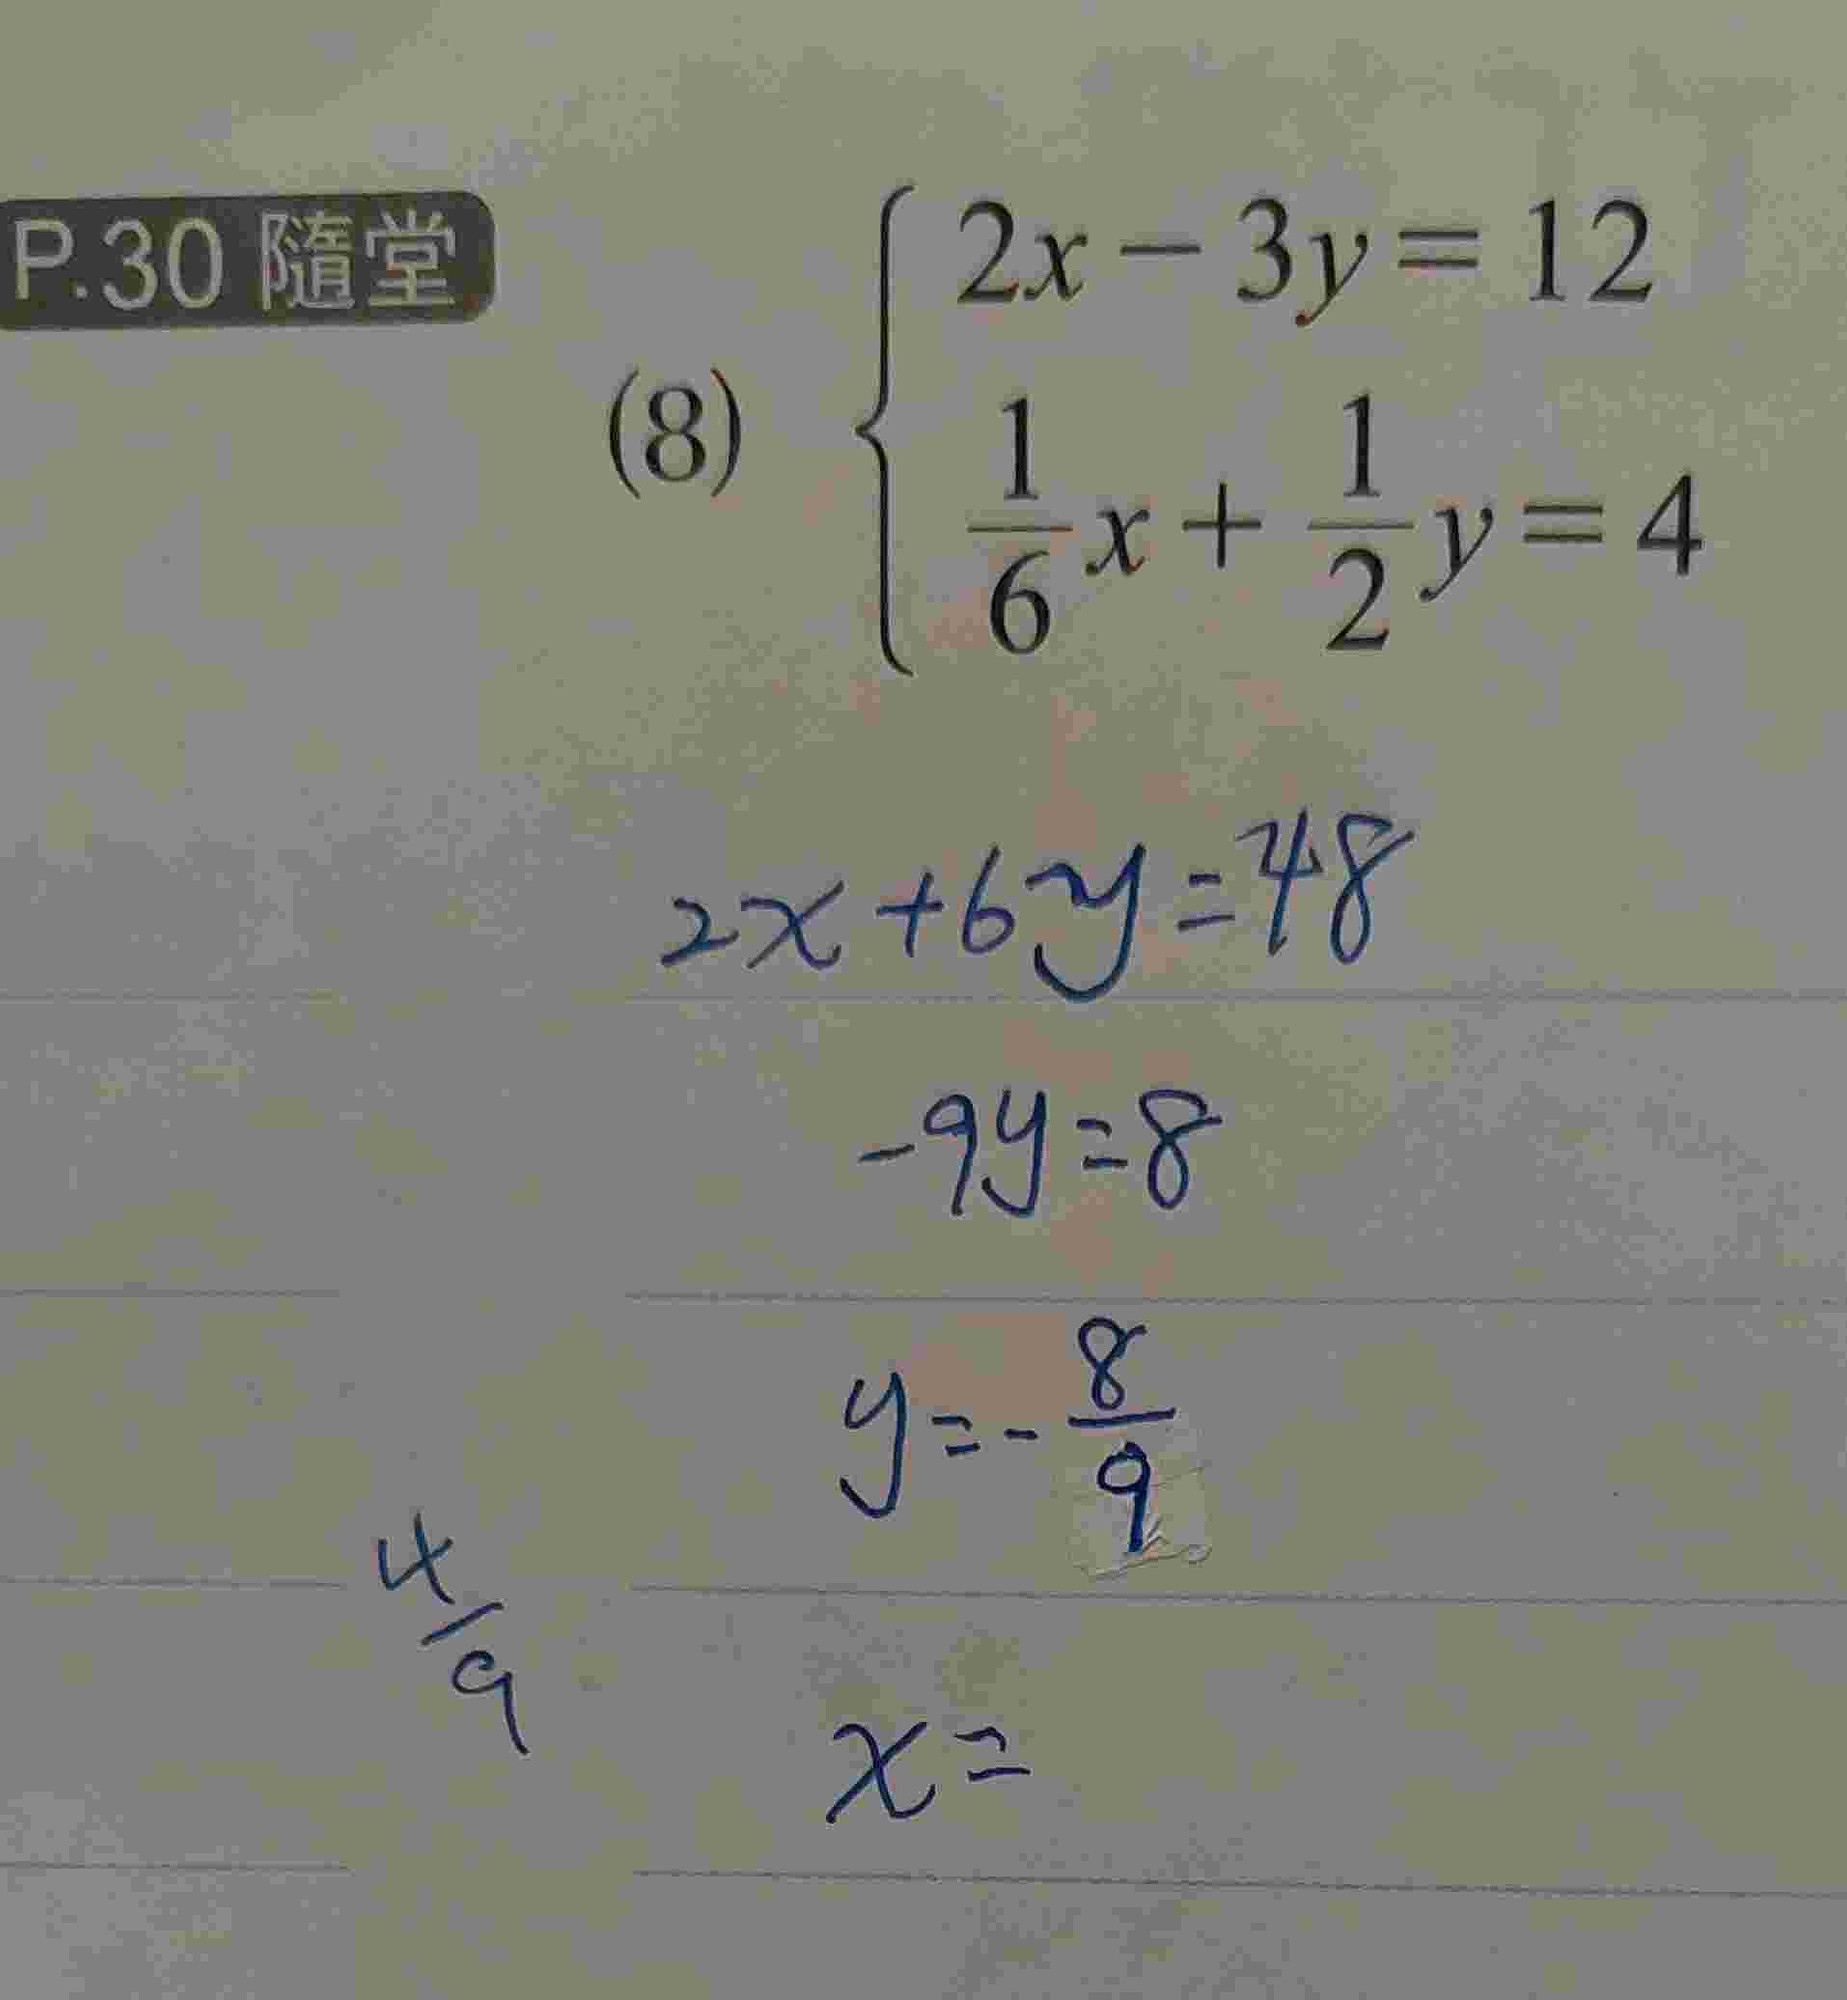 P.30 隨堂
(8) { 2x − 3y = 12
1/6 x + 1/2 y = 4
2x + 6y = 48
-9y = 8
y = - 8/9
4/9
x =